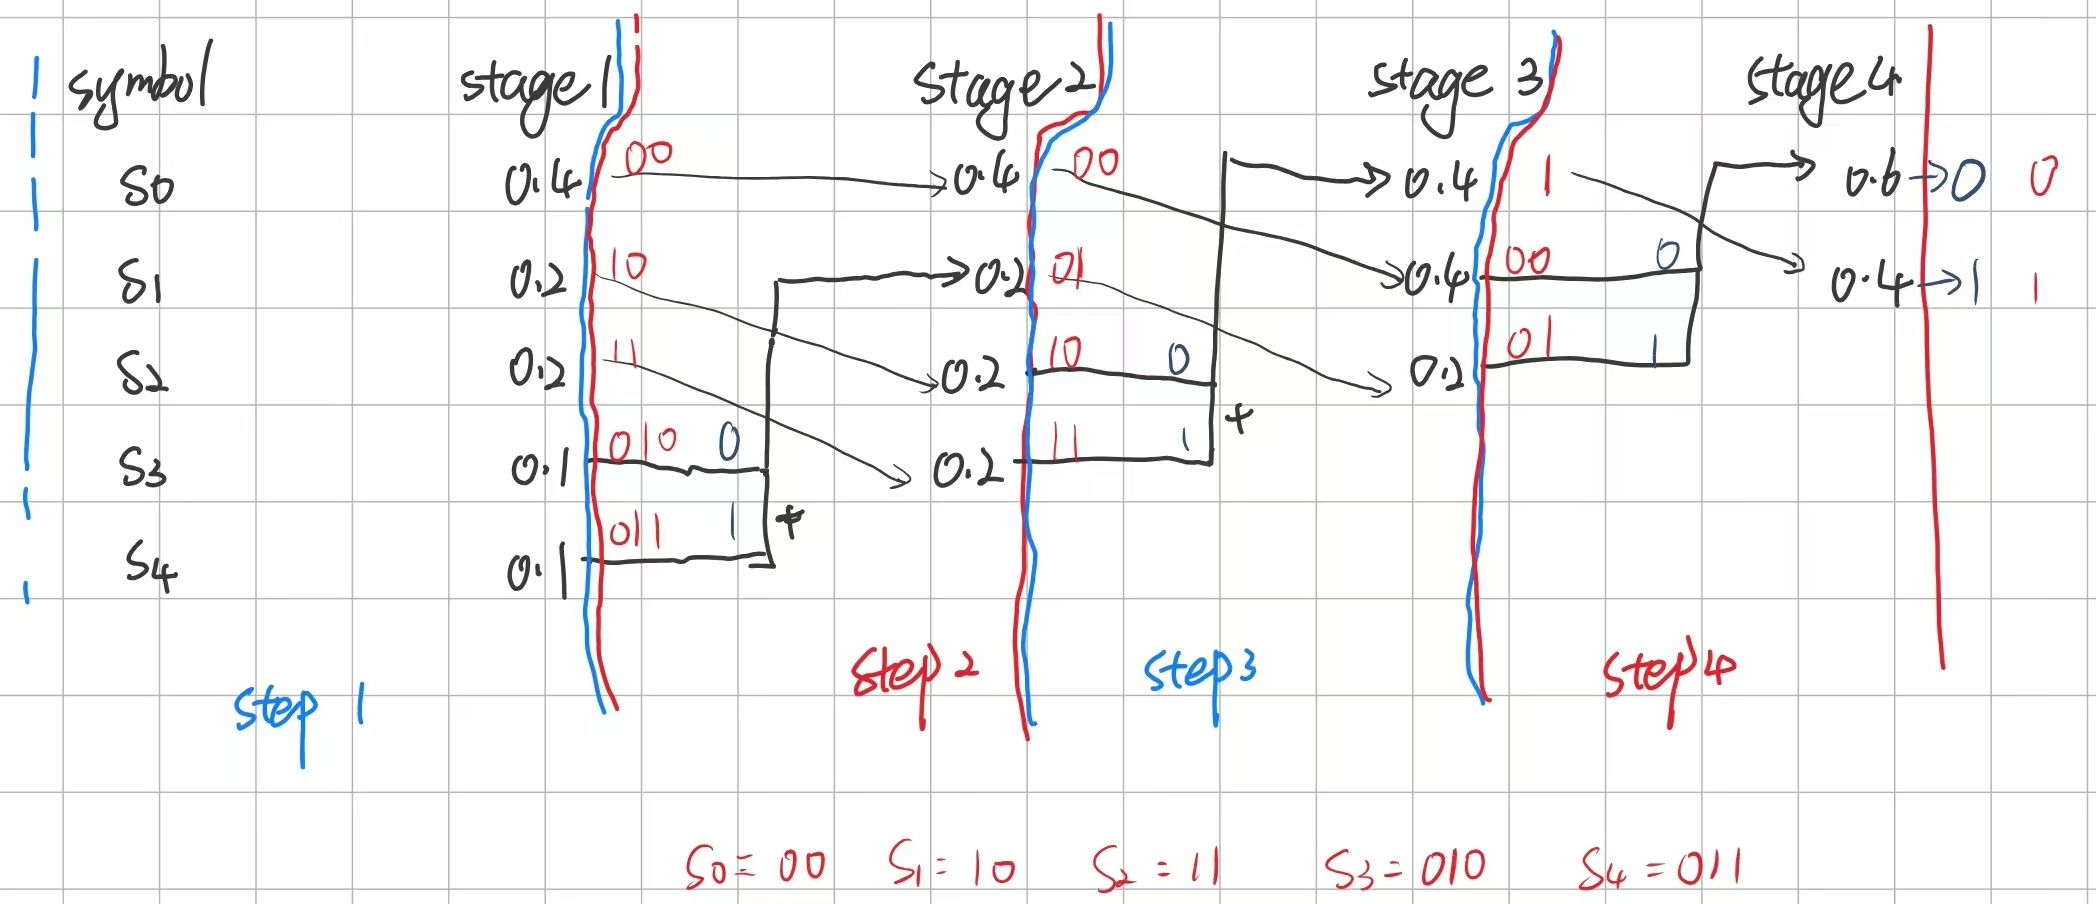 symbol stage1 stage2 stage 3 stage4
S0 0.4 00 0.4 00 0.4 1 0.6 0 0
S1 0.2 10 0.2 01 0.4 00 0 0.4 1 1
S2 0.2 11 0.2 10 0 0.2 01 1
S3 0.1 010 0 0.2 11 1 +
S4 0.1 011 1 +
step 1 step 2 step3 step4
S0= 00 S1= 10 S2 = 11 S3=010 S4 =011